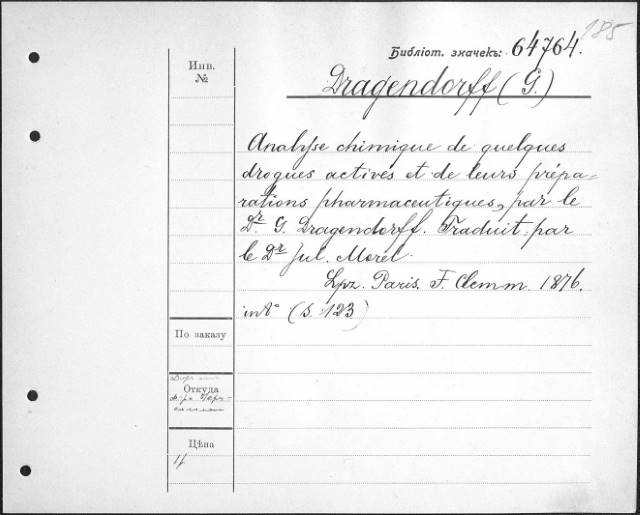 185
Библіот. значекъ: 64764.
Инв.
№
Dragendorff (G.)
Analyse chimique de quelques
drogues actives et de leurs prépa-
rations pharmaceutiques, par le
Dr. G. Dragendorff. Traduit par
le Dr Jul. Morel.
Lpz. Paris. F. Clemm. 1876.
in 8° (S. 123)
По заказу
Откуда
Цѣна